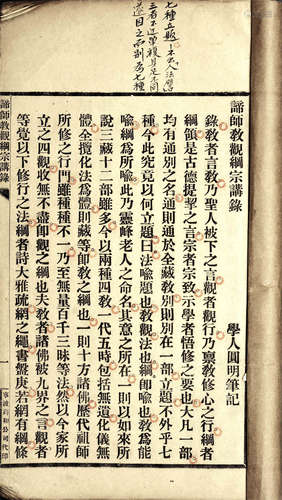 七種立題
諦師教觀綱宗講錄
學人圓明筆記
錄教者言教乃聖人被下之言觀者觀行乃禀教修心之行綱者
綱領是古德提挈之言宗者宗致示學者悟修之要也大凡一部
均有通別之名通則通於全藏教別則別在一部立題不外乎七
種今此究竟以何立題曰法喻題也教觀法也綱即喻也教為能
喻綱為所喻此乃靈峰老人之命名其意之所在一則以如來所
說三藏十二部雖多今以兩種四教一代五時包括無遺化儀無
體全攬化法為體則藏等師教之綱也一則十方諸佛歷代祖師
所修之行門雖種種不一乃至無量百千三昧等法然以今家所
立之四觀收無不盡即觀之綱也夫教者諸佛被九界之言觀者
等覺以下修行之法綱者詩大雅疏網之繩書盤庚若網有綱條
一